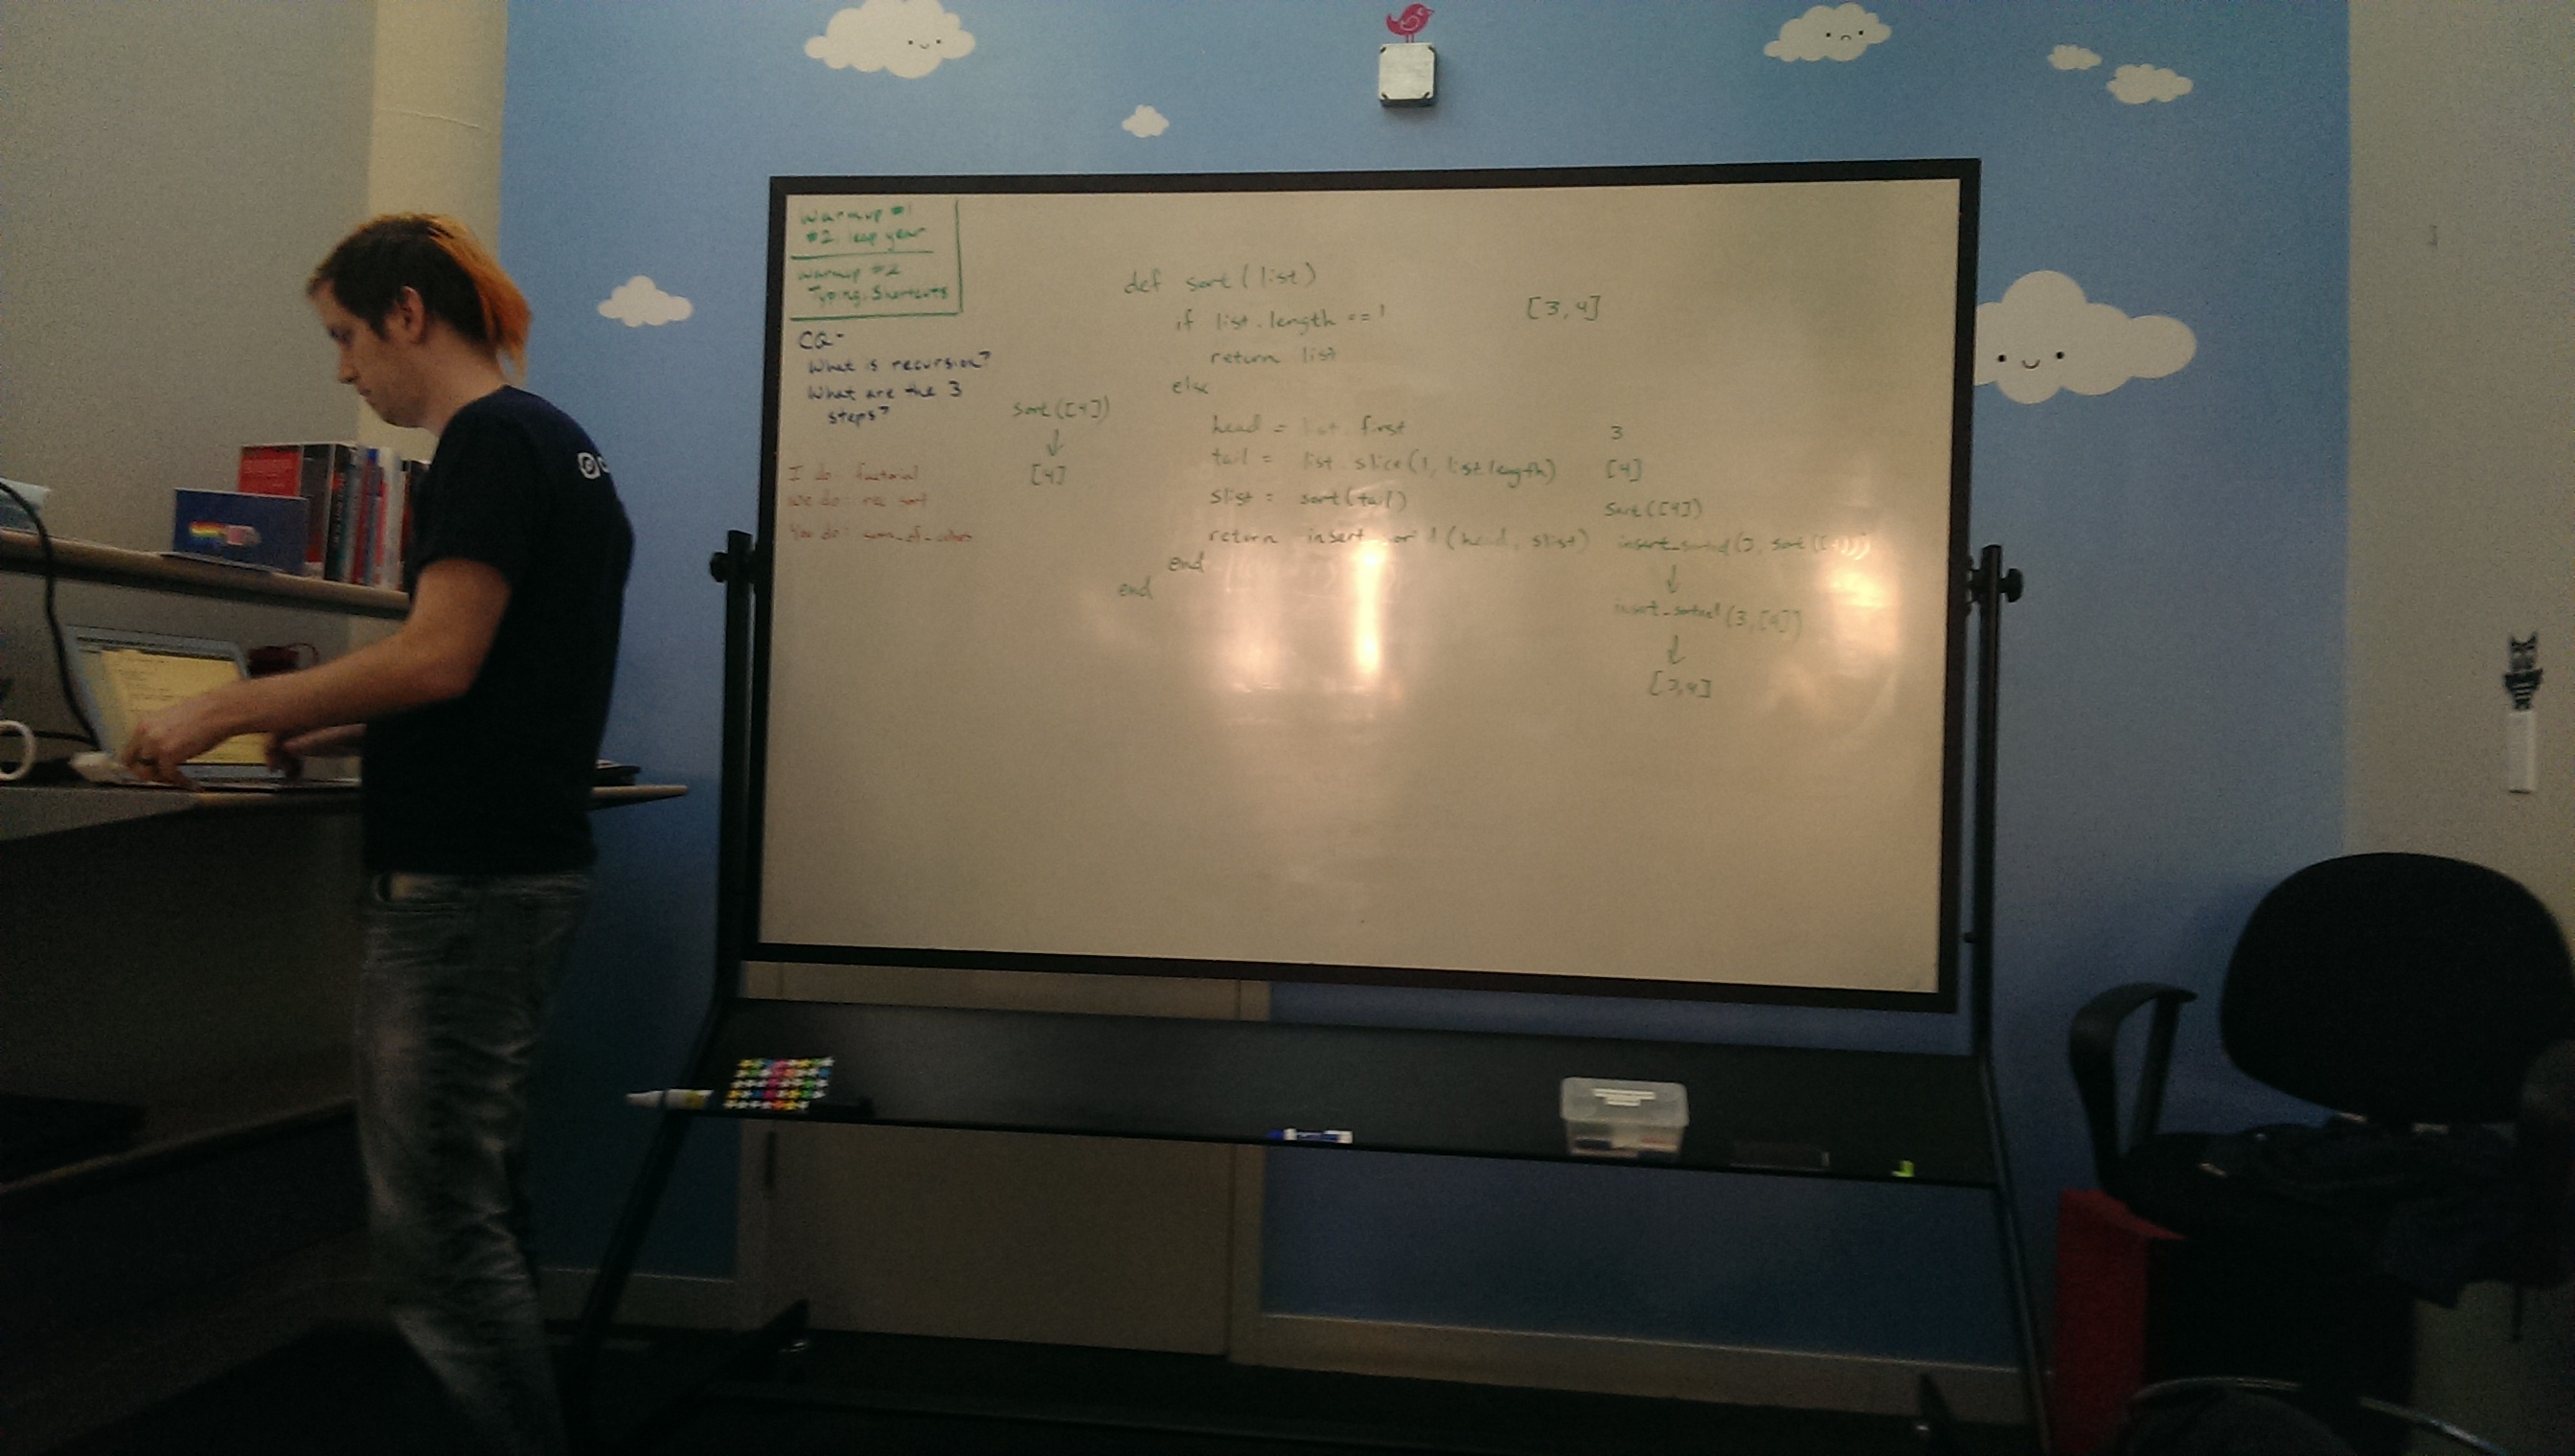 Warmup #1
#2. leap year
Warmup #2
Typing. Shortcuts
CQ-
What is recursion?
What are the 3
steps?
I do: factorial
We do: rec sort
You do:
sort([4])
↓
[4]
def sort(list)
if list.length == 1
return list
else
head = list.first
tail = list.slice(1, list.length)
slist = sort(tail)
return insert_sorted(head, slist)
end
end
[3,4]
3
[4]
Sort([4])
insert_sorted(3, sort([4]))
↓
insert_sorted(3,[4])
↓
[3,4]